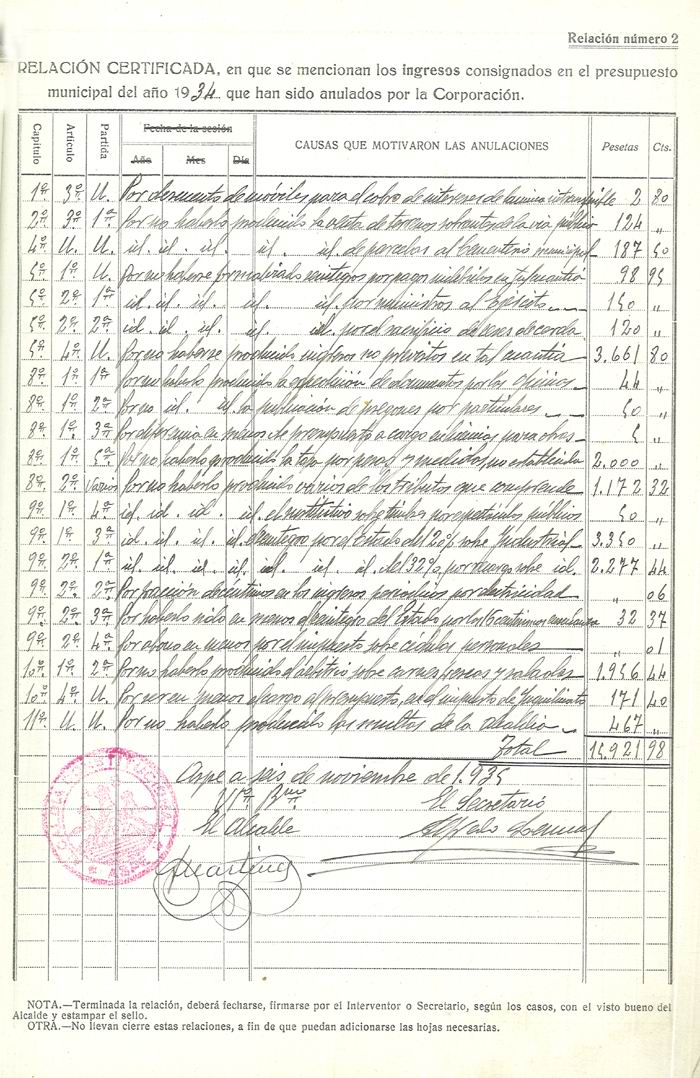 Relación número 2
RELACIÓN CERTIFICADA, en que se mencionan los ingresos consignados en el presupuesto
municipal del año 1934 que han sido anulados por la Corporación.
Capítulo Artículo Partida Fecha de la sesión Año Mes Día CAUSAS QUE MOTIVARON LAS ANULACIONES Pesetas Cts.
1º 3º U. Por descuento de móviles para el cobro de intereses de lámina intransferible 2 80
2º 3º 1ª Por no haberse producido la venta de terrenos sobrantes de la vía pública 124 "
4º U. U. id. id. id. id. id. de parcelas al Cementerio municipal 187 50
5º 1º U. Por no haberse formalizado reintegros por pagos indebidos en tal cuantía 98 95
5º 2º 1ª id. id. id. id. id. por suministros al Ejército 150 "
5º 2º 2ª id. id. id. id. id. por el sacrificio de reses de cerda 120 "
5º 4º U. Por no haberse producido ingresos no previstos en tal cuantía 3.661 80
8º 1º 1ª Por no haberse producido la expedición de documentos por las oficinas 44 "
8º 1º 2ª Por no id. id. la publicación de pregones por particulares 50 "
8º 1º 3ª Por diferencia en menos de presupuesto a cargo en licencias para obras 5 "
8º 1º 5ª Por no haberse producido la tasa por pesas y medidas, no establecida 2.000 "
8º 2º Varios Por no haberse producido varios de los tributos que comprende 1.172 32
9º 1º 4ª id. id. id. id. el sustitutivo sobre timbre por espectáculos públicos 50 "
9º 1º 3ª id. id. id. id. el reintegro por el Estado del 20% sobre Industrial 3.350 "
9º 2º 1ª id. id. id. id. id. id. id. del 32%, por recargo sobre id. 2.277 44
9º 2º 2ª Por fracción de céntimos en los ingresos percibidos por electricidad 06
9º 2º 3ª Por haberse sido en menos el reintegro del Estado por los 16 céntimos 32 37
9º 2º 4ª Por abono en menos por el impuesto sobre cédulas personales " 01
10º 1º 2ª Por no haberse producido el arbitrio sobre carnes frescas y saladas 1.956 44
10º 4º U. Por ser en menos el cargo al presupuesto, en el impuesto de Inquilinato 171 40
11º U. U. Por no haberse producido las multas de la alcaldía 467 "
Total 15.921 98
Aspe a seis de noviembre de 1.935
Vº Bno
El Secretario
El Alcalde
NOTA.—Terminada la relación, deberá fecharse, firmarse por el Interventor o Secretario, según los casos, con el visto bueno del
Alcalde y estampar el sello.
OTRA.—No llevan cierre estas relaciones, a fin de que puedan adicionarse las hojas necesarias.